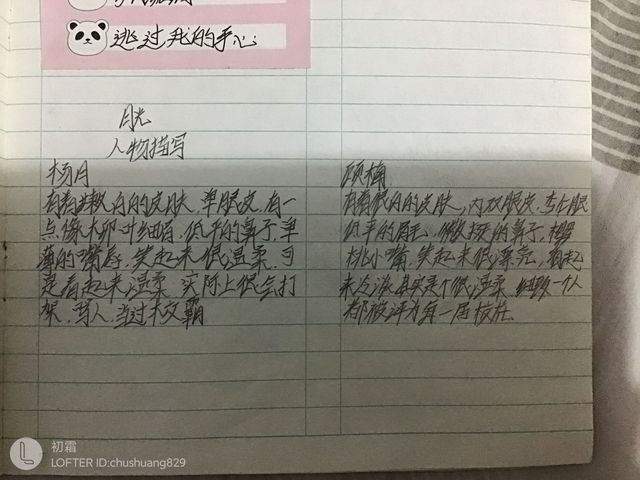 逃过我的手心
胱
人物描写
杨月
有着较白的皮肤，单眼皮，有一
点像大邱叶细眉，低平的鼻子，单
薄的嘴唇，笑起来很温柔，可
是看起来温柔，实际上很会打
架，骂人，当过木交霸
顾楠
有着很白的皮肤，内双眼皮，
低平的眉毛，微挺的鼻子，樱
桃小嘴，笑起来很漂亮，看起
来活泼其实是个很温柔，细致一个人
都被评为每一届校花
初霜
LOFTER ID:chushuang829